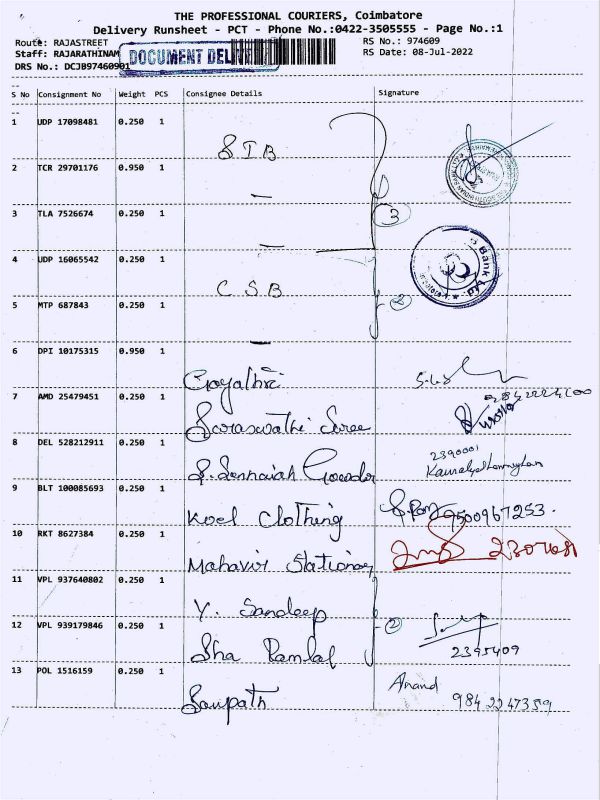 THE PROFESSIONAL COURIERS, Coimbatore
Delivery Runsheet - PCT - Phone No.:0422-3505555 - Page No.:1
Route: RAJASTREET
RS No.: 974609
Staff: RAJARATHINAM
RS Date: 08-Jul-2022
DRS No.: DCJB97460901
DOCUMENT DEL
S No Consignment No Weight PCS Consignee Details Signature
1 UDP 17098481 0.250 1
S.I.B
2 TCR 29701176 0.950 1
—
3 TLA 7526674 0.250 1
3
—
4 UDP 16065542 0.250 1
Bank Ltd
C S B
5 MTP 687843 0.250 1
2
—
6 DPI 10175315 0.950 1
Gayathri
7 AMD 25479451 0.250 1
Saraswathi Sree
8 DEL 528212911 0.250 1
2390001
S. Sennaiah Gounder
9 BLT 100085693 0.250 1
Koel Clothing
9500967253.
10 RKT 8627384 0.250 1
Mahavir Stationary
11 VPL 937640802 0.250 1
Y. Sandeep
12 VPL 939179846 0.250 1
2
Sha Ramlal
2395409
13 POL 1516159 0.250 1
Anand
Sampath
984 2247359